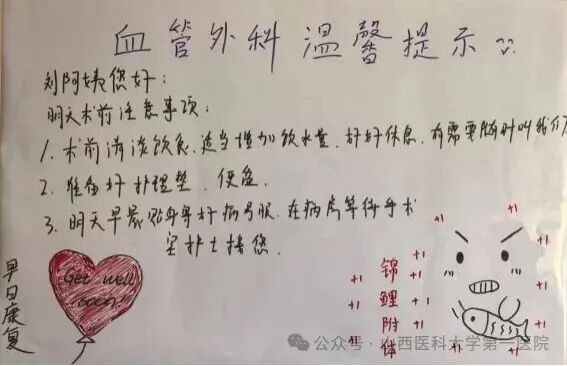 血管外科温馨提示
刘阿姨您好:
明天术前注意事项:
1、术前清淡饮食、适当增加饮水量、好好休息、有需要随时叫我们
2、准备好护理垫、便盆、
3、明天早晨贴身穿好病号服、在病房等待手术
室护士接您、
早日康复
Get well
soon!
锦鲤附体
+1
+1
+1
+1
+1
+1
+1
+1
+1
+1
+1
+1
公众号·山西医科大学第一医院